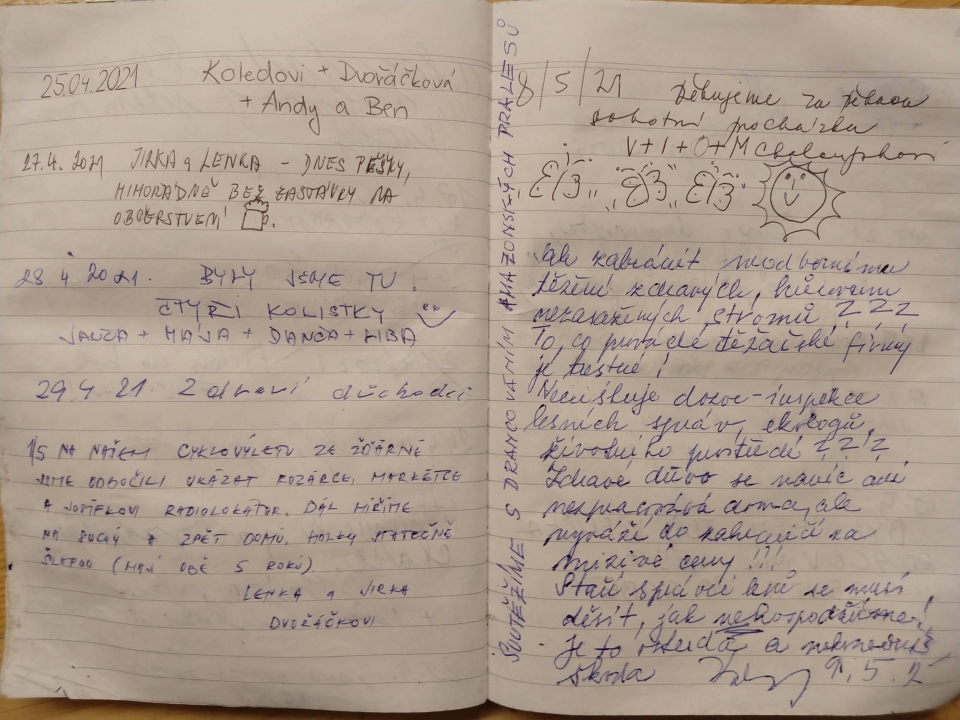 25.04.2021 Koledovi + Dvořáčková
+ Andy a Ben
27.4. 2021 JIRKA a LENKA - DNES PĚŠKY,
MIMOŘÁDNĚ BEZ ZASTÁVKY NA
OBČERSTVENÍ
28 4 2021. BYLY JSME TU
ČTYŘI KOLISTKY
VANČA + MÁJA + DANČA + LIBA
29.4. 21. Zdraví důchodci
1/5 NA NAŠEM CYKLOVÝLETU ZE ŽĎÁRNÉ
JSME ODBOČILI UKÁZAT ROZÁRCE, MARKÉTCE
A JOSÍFKOVI RADIOLOKÁTOR. DÁL MÍŘÍME
NA SUCHÝ A ZPĚT DOMŮ. HOLKY STATEČNĚ
ŠLAPOU (MAJÍ OBĚ 5 ROKŮ)
LENKA a JIRKA
DVOŘÁČKOVI
SOUTĚŽÍME S DRANCOVÁNÍM AMAZONSKÝCH PRALESŮ
8/5/21 Děkujeme za pěknou
sobotní procházku
V+I+O+M
Jak zabránit neodbornému
těžení zdravých, kůrovcem
nezasažených stromů ? ? ?
To, co provádí těžařské firmy
je děsné!
Neexistuje dozor-inspekce
lesních správ, ekologů,
životního prostředí ? ? ?
Zdravé dřevo se navíc ani
nezpracovává doma, ale
vyváží do zahraničí za
mizivé ceny !!!
Staří správci lesů se musí
děsit, jak nehospodaříme!
Je to ostuda a
škoda 9.5.21